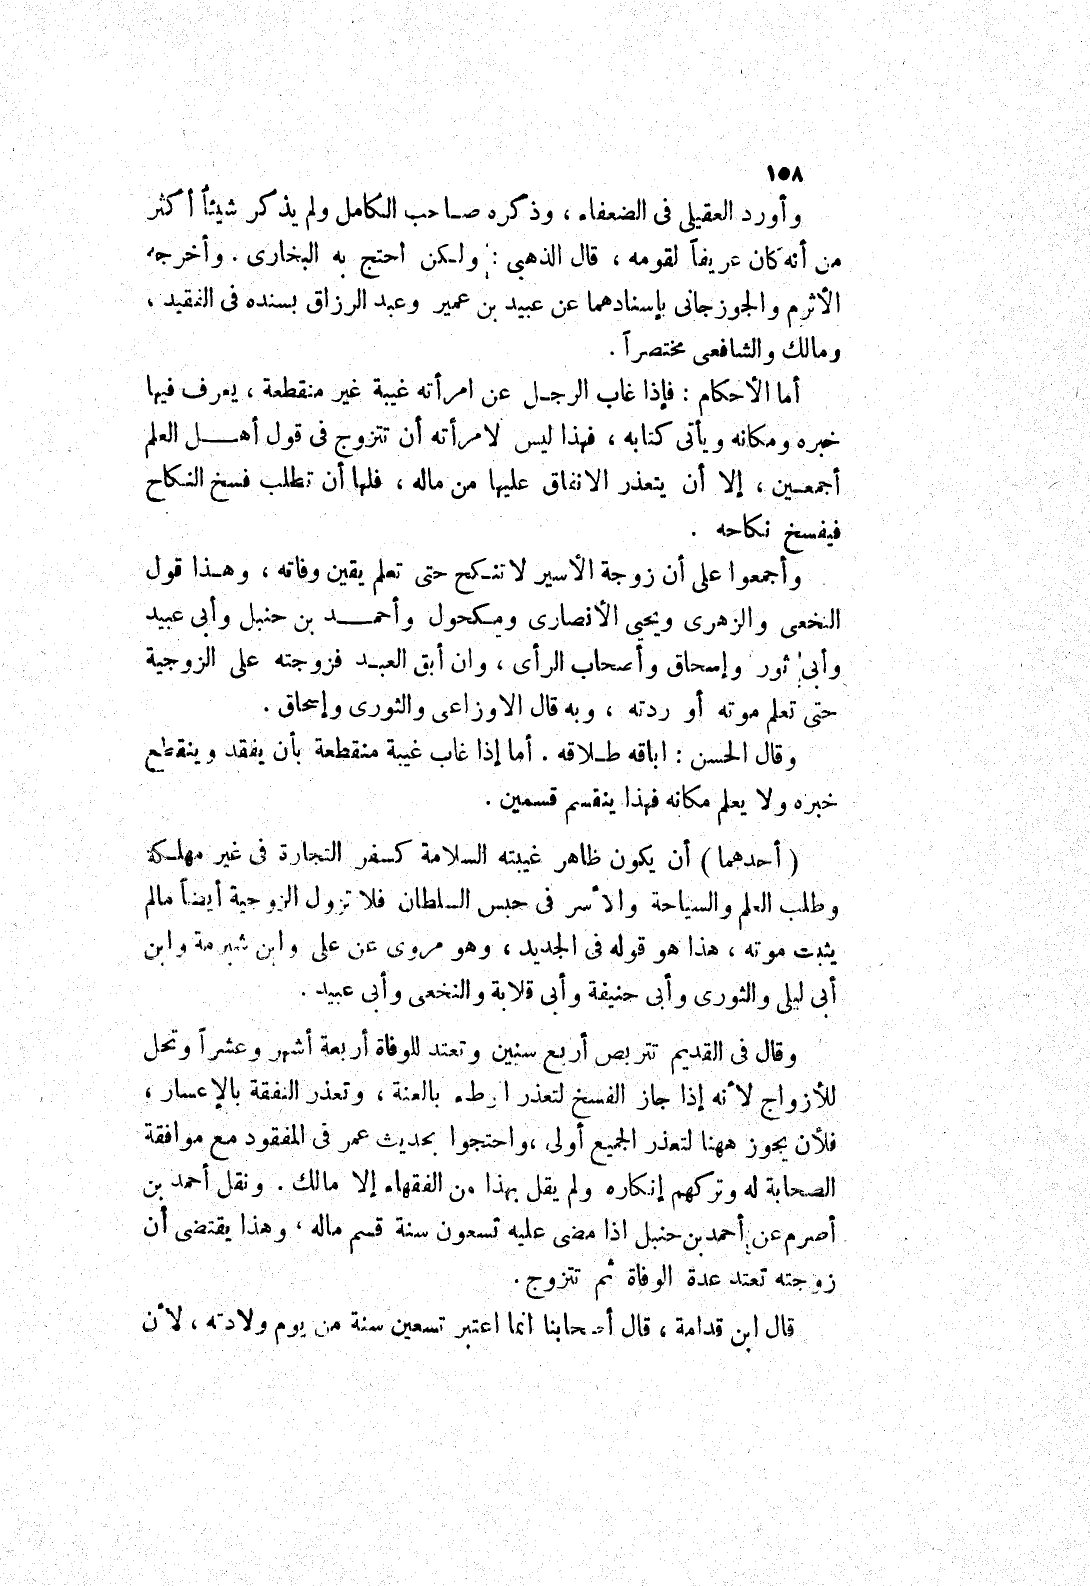 ١٥٨
وأورد العقيلى فى الضعفاء ، وذكره صاحب الكامل ولم يذكر شيئاً أكثر
من أنه كان عريفاً لقومه ، قال الذهبى : ولكن احتج به البخارى . وأخرجه
الأثرم والجوزجانى بإسنادهما عن عبيد بن عمير وعبد الرزاق بسنده فى الفقيد ،
ومالك والشافعى مختصراً .
أما الأحكام : فإذا غاب الرجل عن امرأته غيبة غير منقطعة ، يعرف فيها
خبره ومكانه ويأتى كتابه ، فهذا ليس لامرأته أن تتزوج فى قول أهل العلم
أجمعين ، إلا أن يتعذر الانفاق عليها من ماله ، فلها أن تطلب فسخ النكاح
فيفسخ نكاحه .
وأجمعوا على أن زوجة الأسير لا تنكح حتى تعلم يقين وفاته ، وهذا قول
النخعى والزهرى ويحيى الأنصارى ومكحول وأحمد بن حنبل وأبى عبيد
وأبى ثور وإسحاق وأصحاب الرأى ، وان أبق العبد فزوجته على الزوجية
حتى تعلم موته أو ردته ، وبه قال الاوزاعى والثورى وإسحاق .
وقال الحسن : اباقه طلاقه . أما إذا غاب غيبة منقطعة بأن يفقد وينقطع
خبره ولا يعلم مكانه فهذا ينقسم قسمين .
( أحدهما ) أن يكون ظاهر غيبته السلامة كسفر التجارة فى غير مهلكة
وطلب العلم والسياحة والأسر فى حبس السلطان فلا تزول الزوجية أيضاً مالم
يثبت موته ، هذا هو قوله فى الجديد ، وهو مروى عن على وابن شبرمة وابن
أبى ليلى والثورى وأبى حنيفة وأبى قلابة والنخعى وأبى عبيد .
وقال فى القديم تتربص أربع سنين وتعتد للوفاة أربعة أشهر وعشراً وتحل
للأزواج لأنه إذا جاز الفسخ لتعذر الوطء بالعنة ، وتعذر النفقة بالإعسار ،
فلأن يجوز ههنا لتعذر الجميع أولى ، واحتجوا بحديث عمر فى المفقود مع موافقة
الصحابة له وتركهم إنكاره ولم يقل بهذا من الفقهاء إلا مالك . ونقل أحمد بن
أصرم عن أحمد بن حنبل اذا مضى عليه تسعون سنة قسم ماله ، وهذا يقتضى أن
زوجته تعتد عدة الوفاة ثم تتزوج .
قال ابن قدامة ، قال أصحابنا انما اعتبر تسعين سنة من يوم ولادته ، لأن